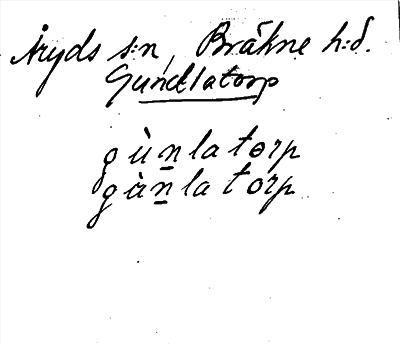 Åryds s:n, Bräkne h:d.
Gundlatorp
gùn̲latorp
gàn̲latorp